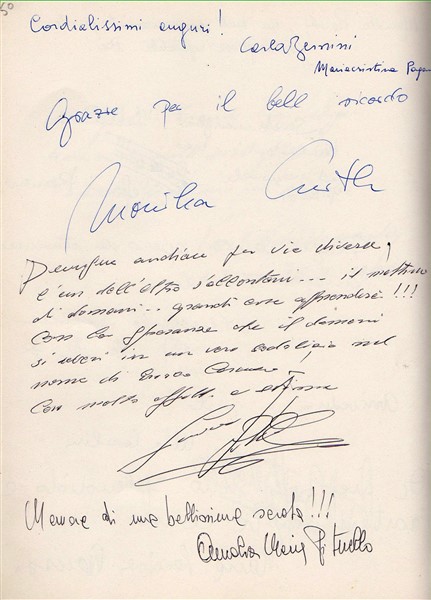 50
Cordialissimi auguri!
Carla Bernini
Mariacristina Pagan
Grazie per il bell ricordo
Monika
andiam per vie diverse,
l'un dall'altro s'allontani... il mattino
di domani... grandi cose apprenderà!!!
Con la speranza che il domani
si in un vero sodalizio nel
nome di Enrico Caruso!
Con molto affetto e stima
Memore di una bellissima serata!!!
Amalia Maria